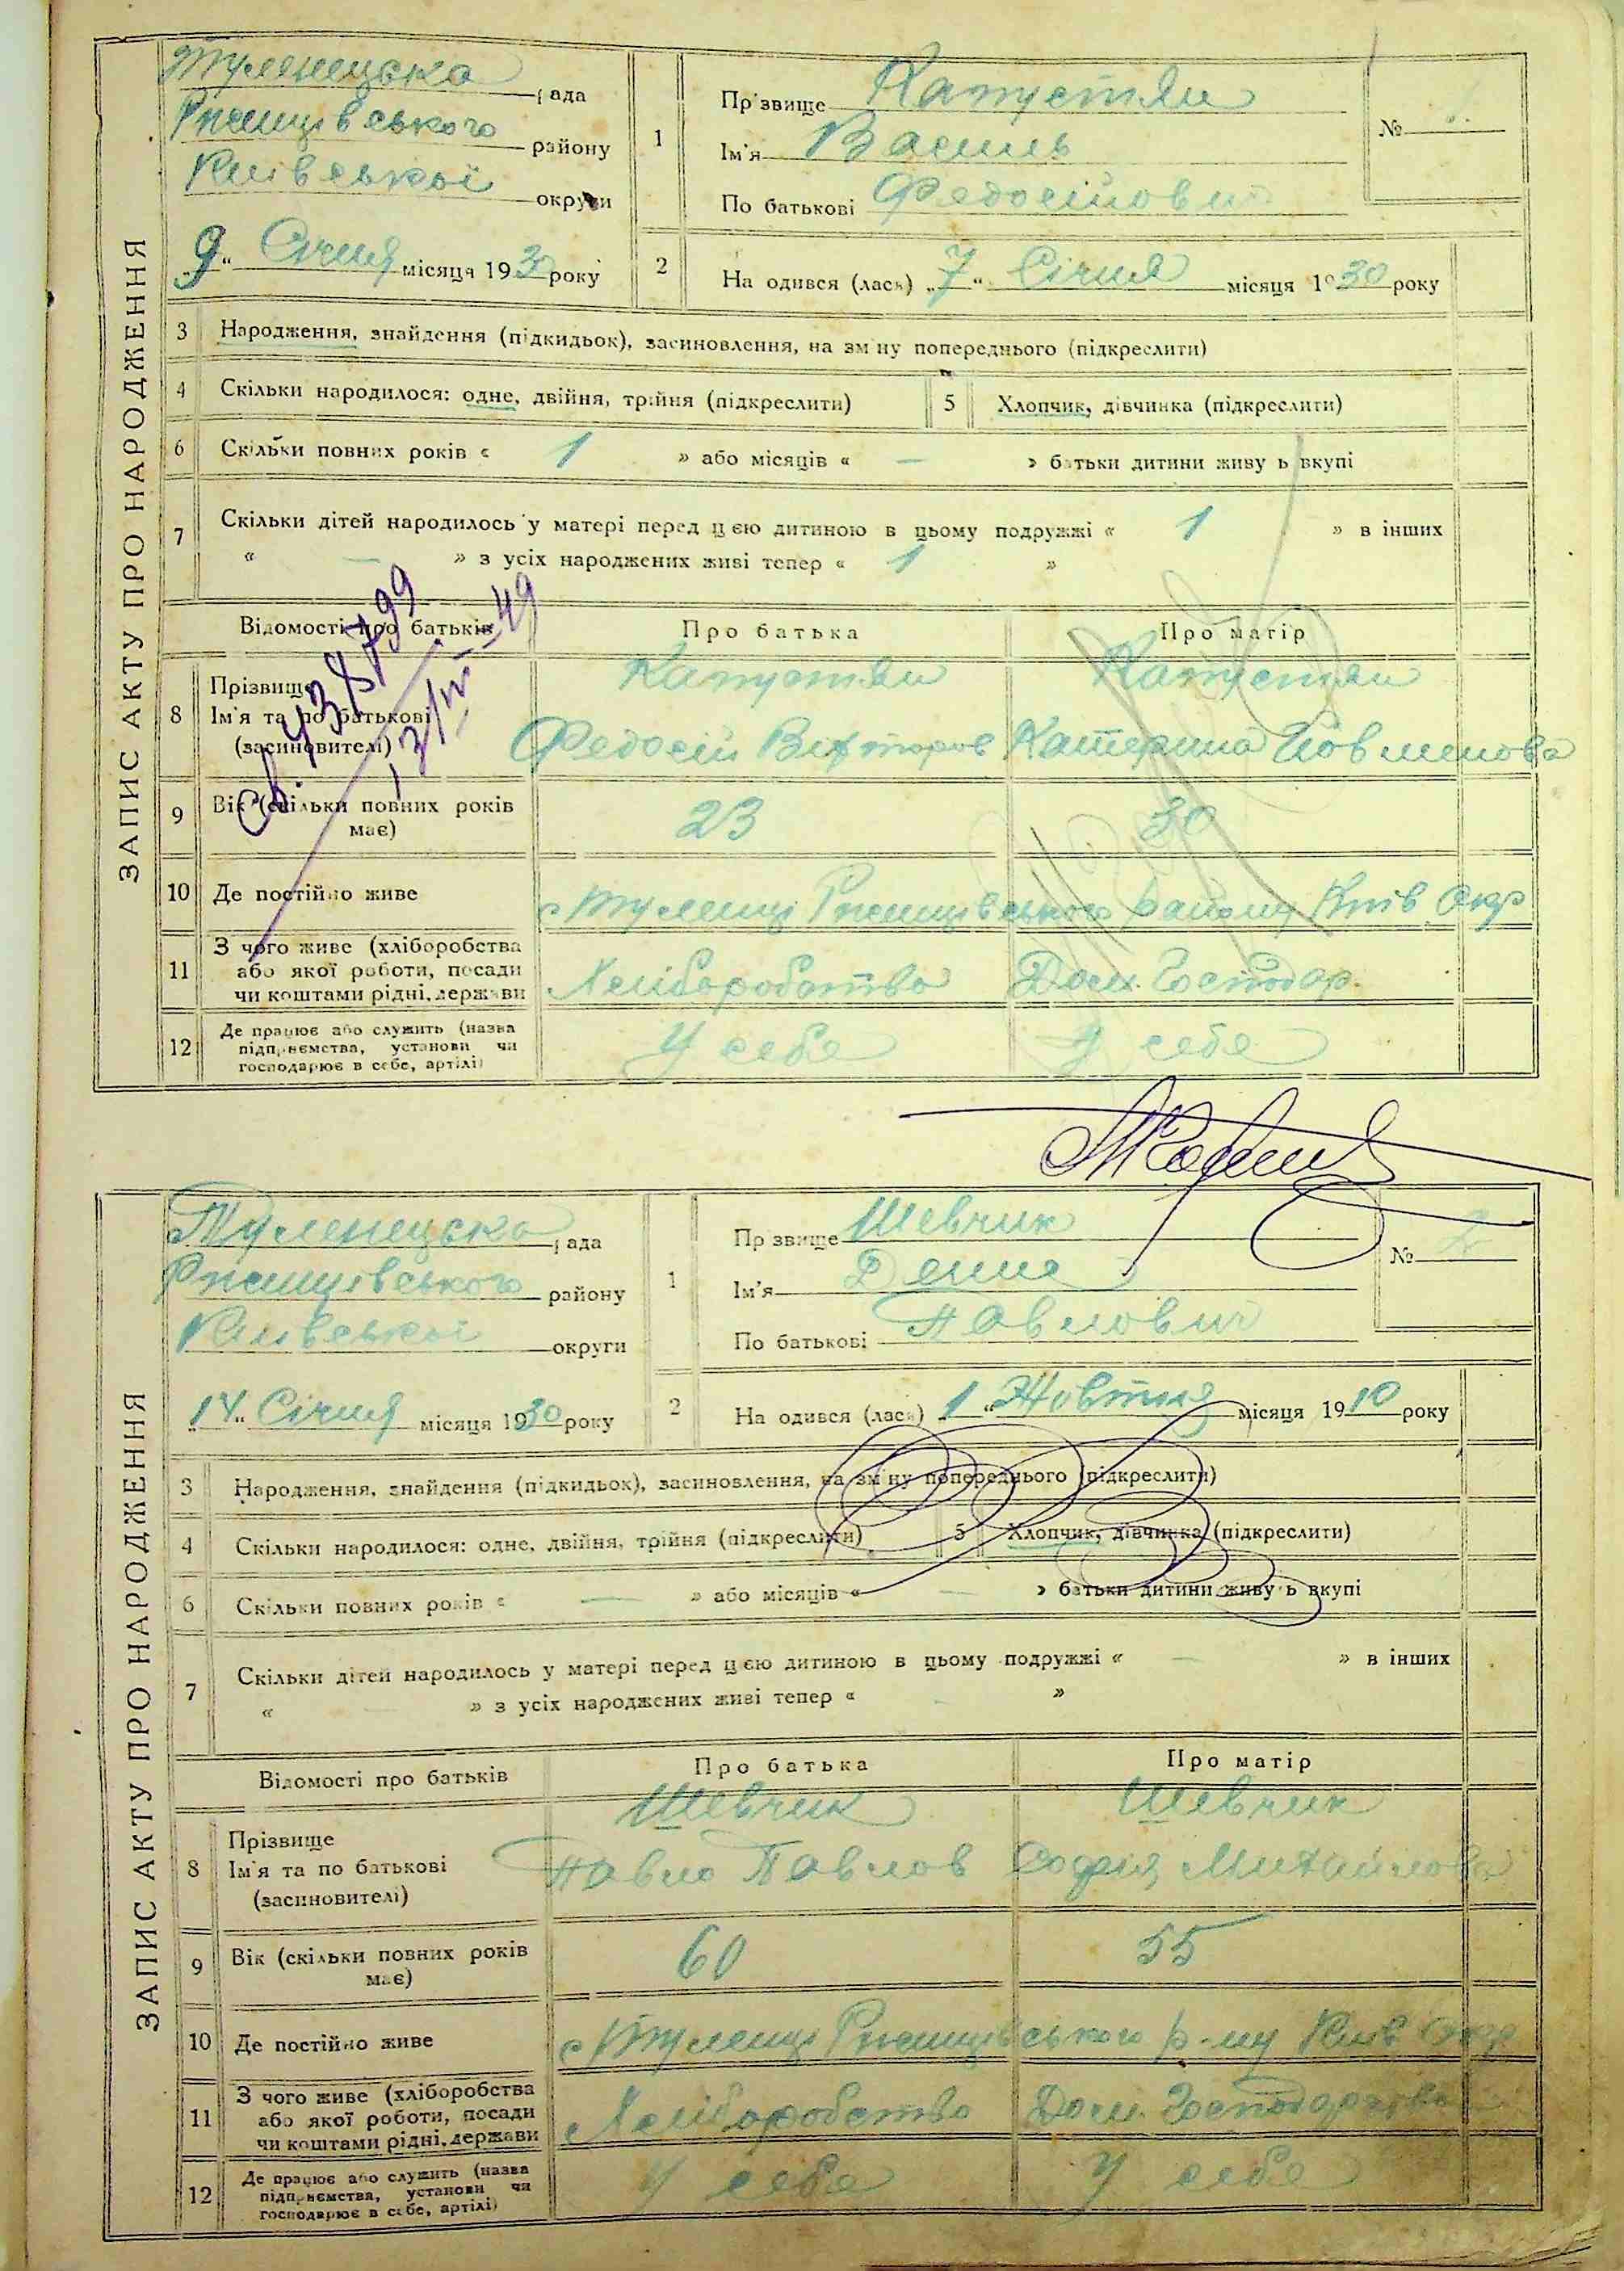 ЗАПИС АКТУ ПРО НАРОДЖЕННЯ
Туленецька рада
Ржищівського району
Київської округи
"9" Січня місяця 1930 року
1 Прізвище Капустян
Ім'я Василь
По батькові Федосійович
№ 1
2 Народився (лася) "7" Січня місяця 1930 року
3 Народження, знайдення (підкидьок), засиновлення, на зміну попереднього (підкреслити)
4 Скільки народилося: одне, двійня, трійня (підкреслити) 5 Хлопчик, дівчинка (підкреслити)
6 Скільки повних років « 1 » або місяців « — » батьки дитини живуть вкупі
7 Скільки дітей народилось у матері перед цією дитиною в цьому подружжі « 1 » в інших
« — » з усіх народжених живі тепер « 1 »
Відомості про батьків Про батька Про матір
8 Прізвище Капустян Капустян
Ім'я та по батькові Федосій Вікторов Катерина
(засиновителі)
9 Вік (скільки повних років має) 23 30
10 Де постійно живе с Туленці Ржищівського району Київ Окр
11 З чого живе (хліборобства
або якої роботи, посади
чи коштами рідні, держави Хліборобство Дом. Господар.
12 Де працює або служить (назва
підприємства, установи чи
господарює в себе, артілі) У себе У себе
ЗАПИС АКТУ ПРО НАРОДЖЕННЯ
Туленецька рада
Ржищівського району
Київської округи
"14" Січня місяця 1930 року
1 Прізвище Шевчик
Ім'я Денис
По батькові Павлович
№ 2
2 Народився (лася) "1" Жовтня місяця 1910 року
3 Народження, знайдення (підкидьок), засиновлення, на зміну попереднього (підкреслити)
4 Скільки народилося: одне, двійня, трійня (підкреслити) 5 Хлопчик, дівчинка (підкреслити)
6 Скільки повних років « — » або місяців « — » батьки дитини живуть вкупі
7 Скільки дітей народилось у матері перед цією дитиною в цьому подружжі « — » в інших
« — » з усіх народжених живі тепер « — »
Відомості про батьків Про батька Про матір
8 Прізвище Шевчик Шевчик
Ім'я та по батькові Павло Павлов Софія Михайлова
(засиновителі)
9 Вік (скільки повних років має) 60 55
10 Де постійно живе с Туленці Ржищівського р-ну Київ Окр
11 З чого живе (хліборобства
або якої роботи, посади
чи коштами рідні, держави Хліборобство Дом. Господарство
12 Де працює або служить (назва
підприємства, установи чи
господарює в себе, артілі) У себе У себе